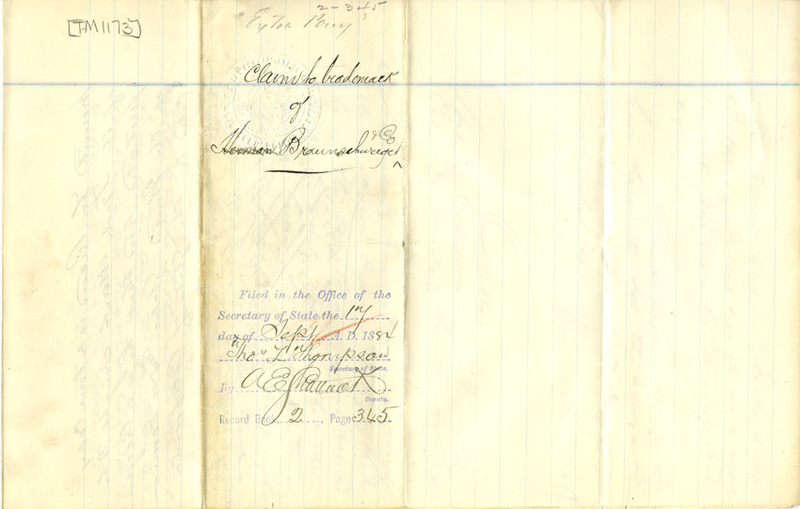 [TM1173]
2-345
Claim to trademark
of
Herman Braunschweiger & Co
Filed in the Office of the
Secretary of State the 17
day of Sept A.D. 1884
Thos L Thompson
Secretary of State.
By A E Shattuck
Deputy.
Record Book 2, Page 345